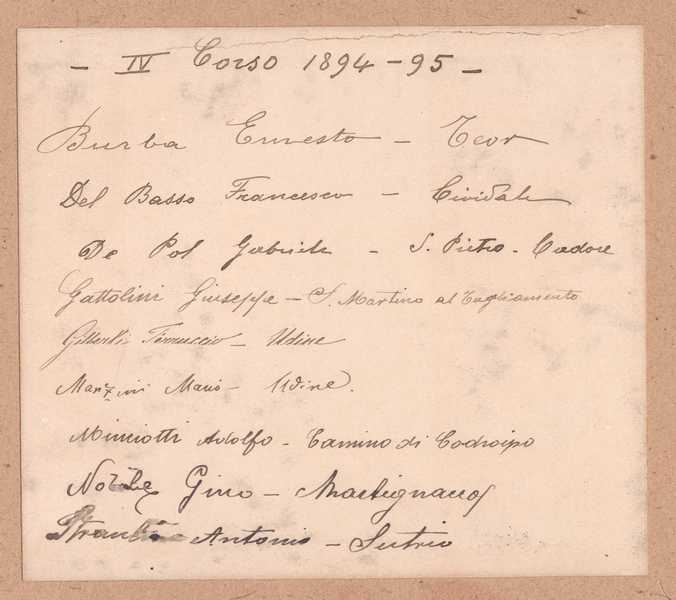 - IV Corso 1894-95 -
Burba Ernesto - Teor
Del Basso Francesco - Cividale
De Pol Gabriele - S. Pietro - Cadore
Gattolini Giuseppe - S. Martino al Tagliamento
Ferruccio - Udine
Mario - Udine.
Miniotti Adolfo - Camino di Codroipo
Nobile Gino - Martignacco
Antonio - Sutrio